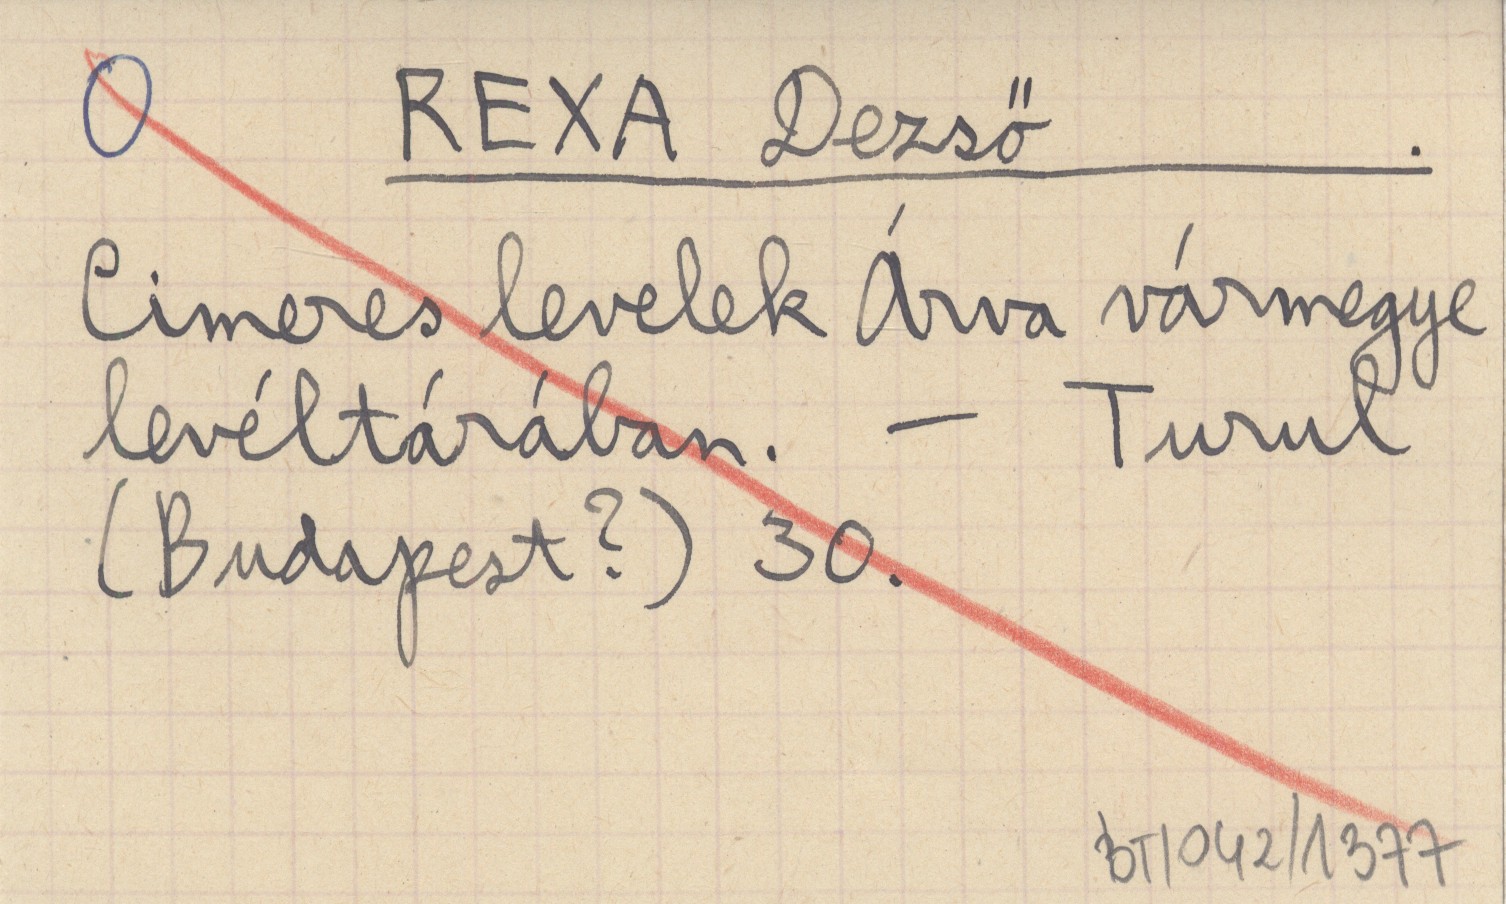 O REXA Dezső .
Cimeres levelek Árva vármegye
levéltárában. — Turul
(Budapest?) 30.
BT/042/1377